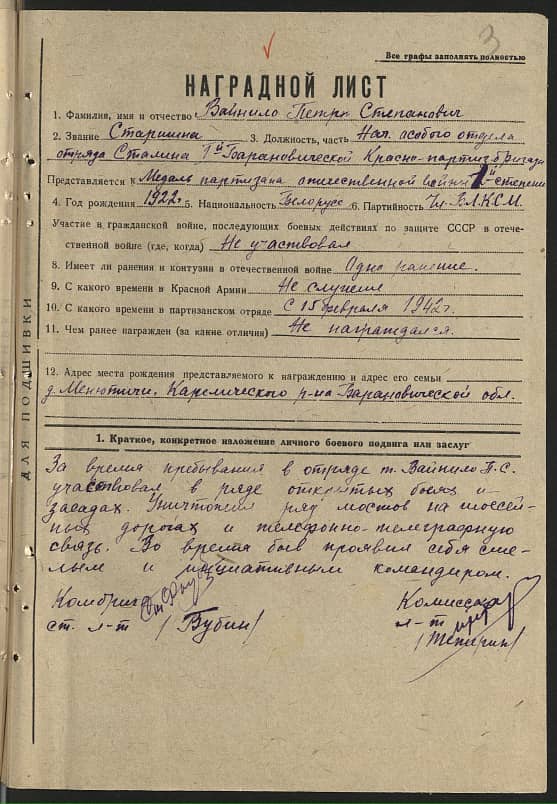 3
Все графы заполнять полностью
НАГРАДНОЙ ЛИСТ
1. Фамилия, имя и отчество Вайнило Петр Степанович
2. Звание Старшина 3. Должность, часть Нач. особого отдела
отряда Сталина 1й Барановической Красно-партиз бригады
Представляется к Медаль партизана отечественной войны 1й степени
4. Год рождения 1922г. 5. Национальность Белорус 6. Партийность Чл. ВЛКСМ.
Участие в гражданской войне, последующих боевых действиях по защите СССР в отече-
ственной войне (где, когда) Не участвовал
8. Имеет ли ранения и контузии в отечественной войне Одно ранение.
9. С какого времени в Красной Армии Не служил
10. С какого времени в партизанском отряде С 15 февраля 1942г.
11. Чем ранее награжден (за какие отличия) Не награждался.
12. Адрес места рождения представляемого к награждению и адрес его семьи
д. Менютичи, Карелического р-на Барановической обл.
1. Краткое, конкретное изложение личного боевого подвига или заслуг
За время пребывания в отряде т. Вайнило П.С.
участвовал в ряде открытых боях и
засадах. Уничтожил ряд мостов на шоссей-
ных дорогах и телефонно-телеграфную
связь. Во время боев проявил себя сме-
лым и инициативным командиром.
Комбриг
ст. л-т / Бубин/
Комиссар
л-т
ДЛЯ ПОДШИВКИ